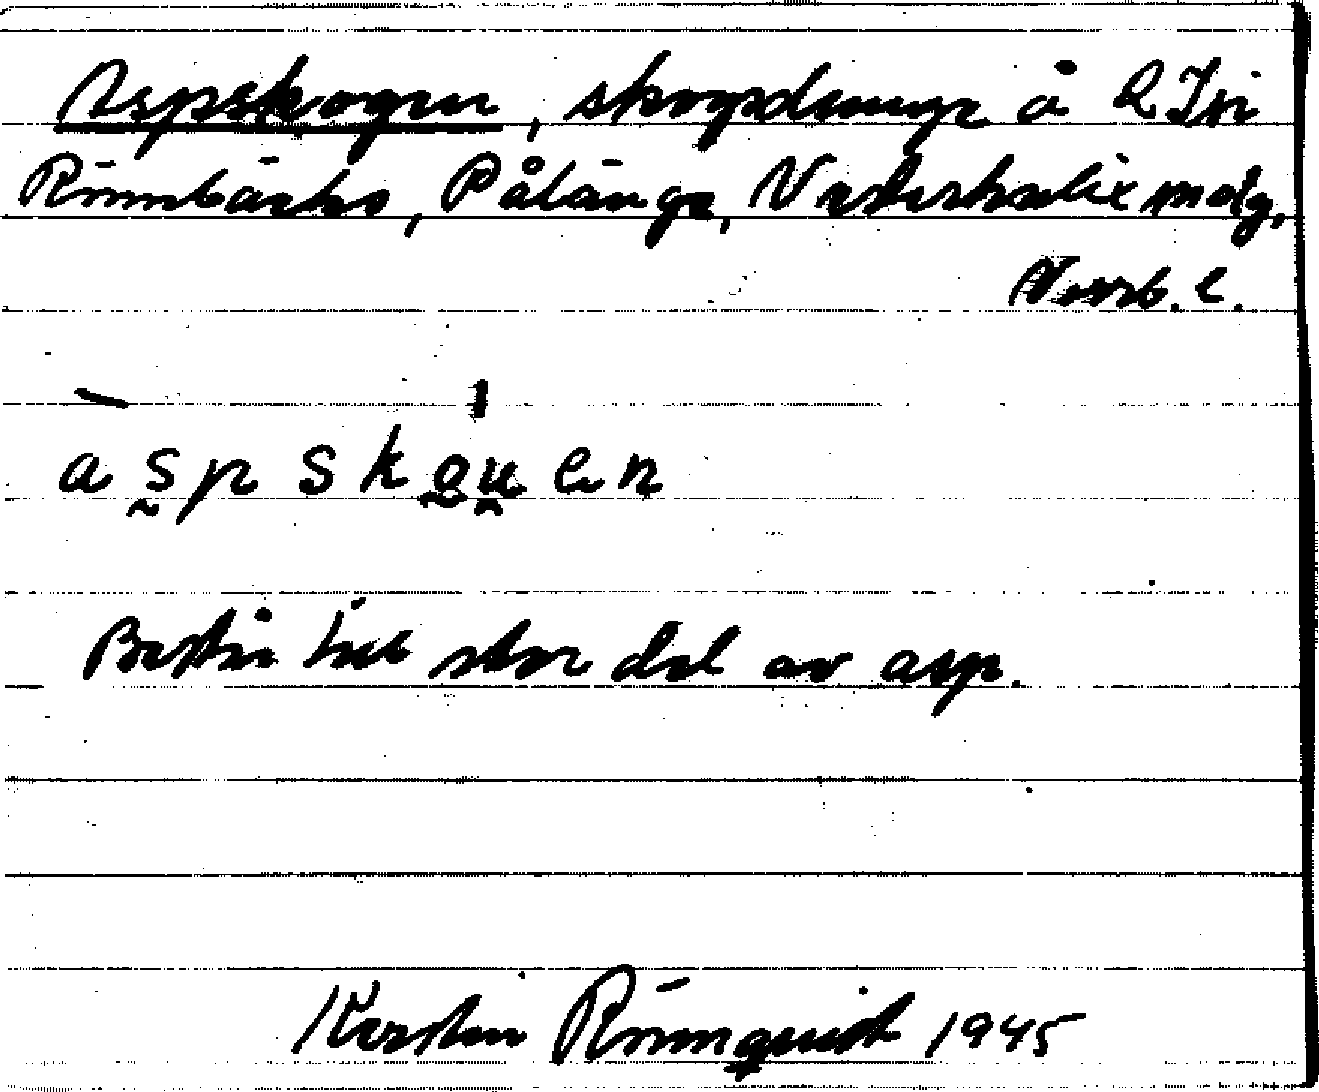 Aspskogen, skogsdunge å
Rönnbäcks, Pålänge, Nederkalix sn
Norrb. l.
aspskou̯en
Består till stor del av asp.
Kerstin Rönnquist 1945